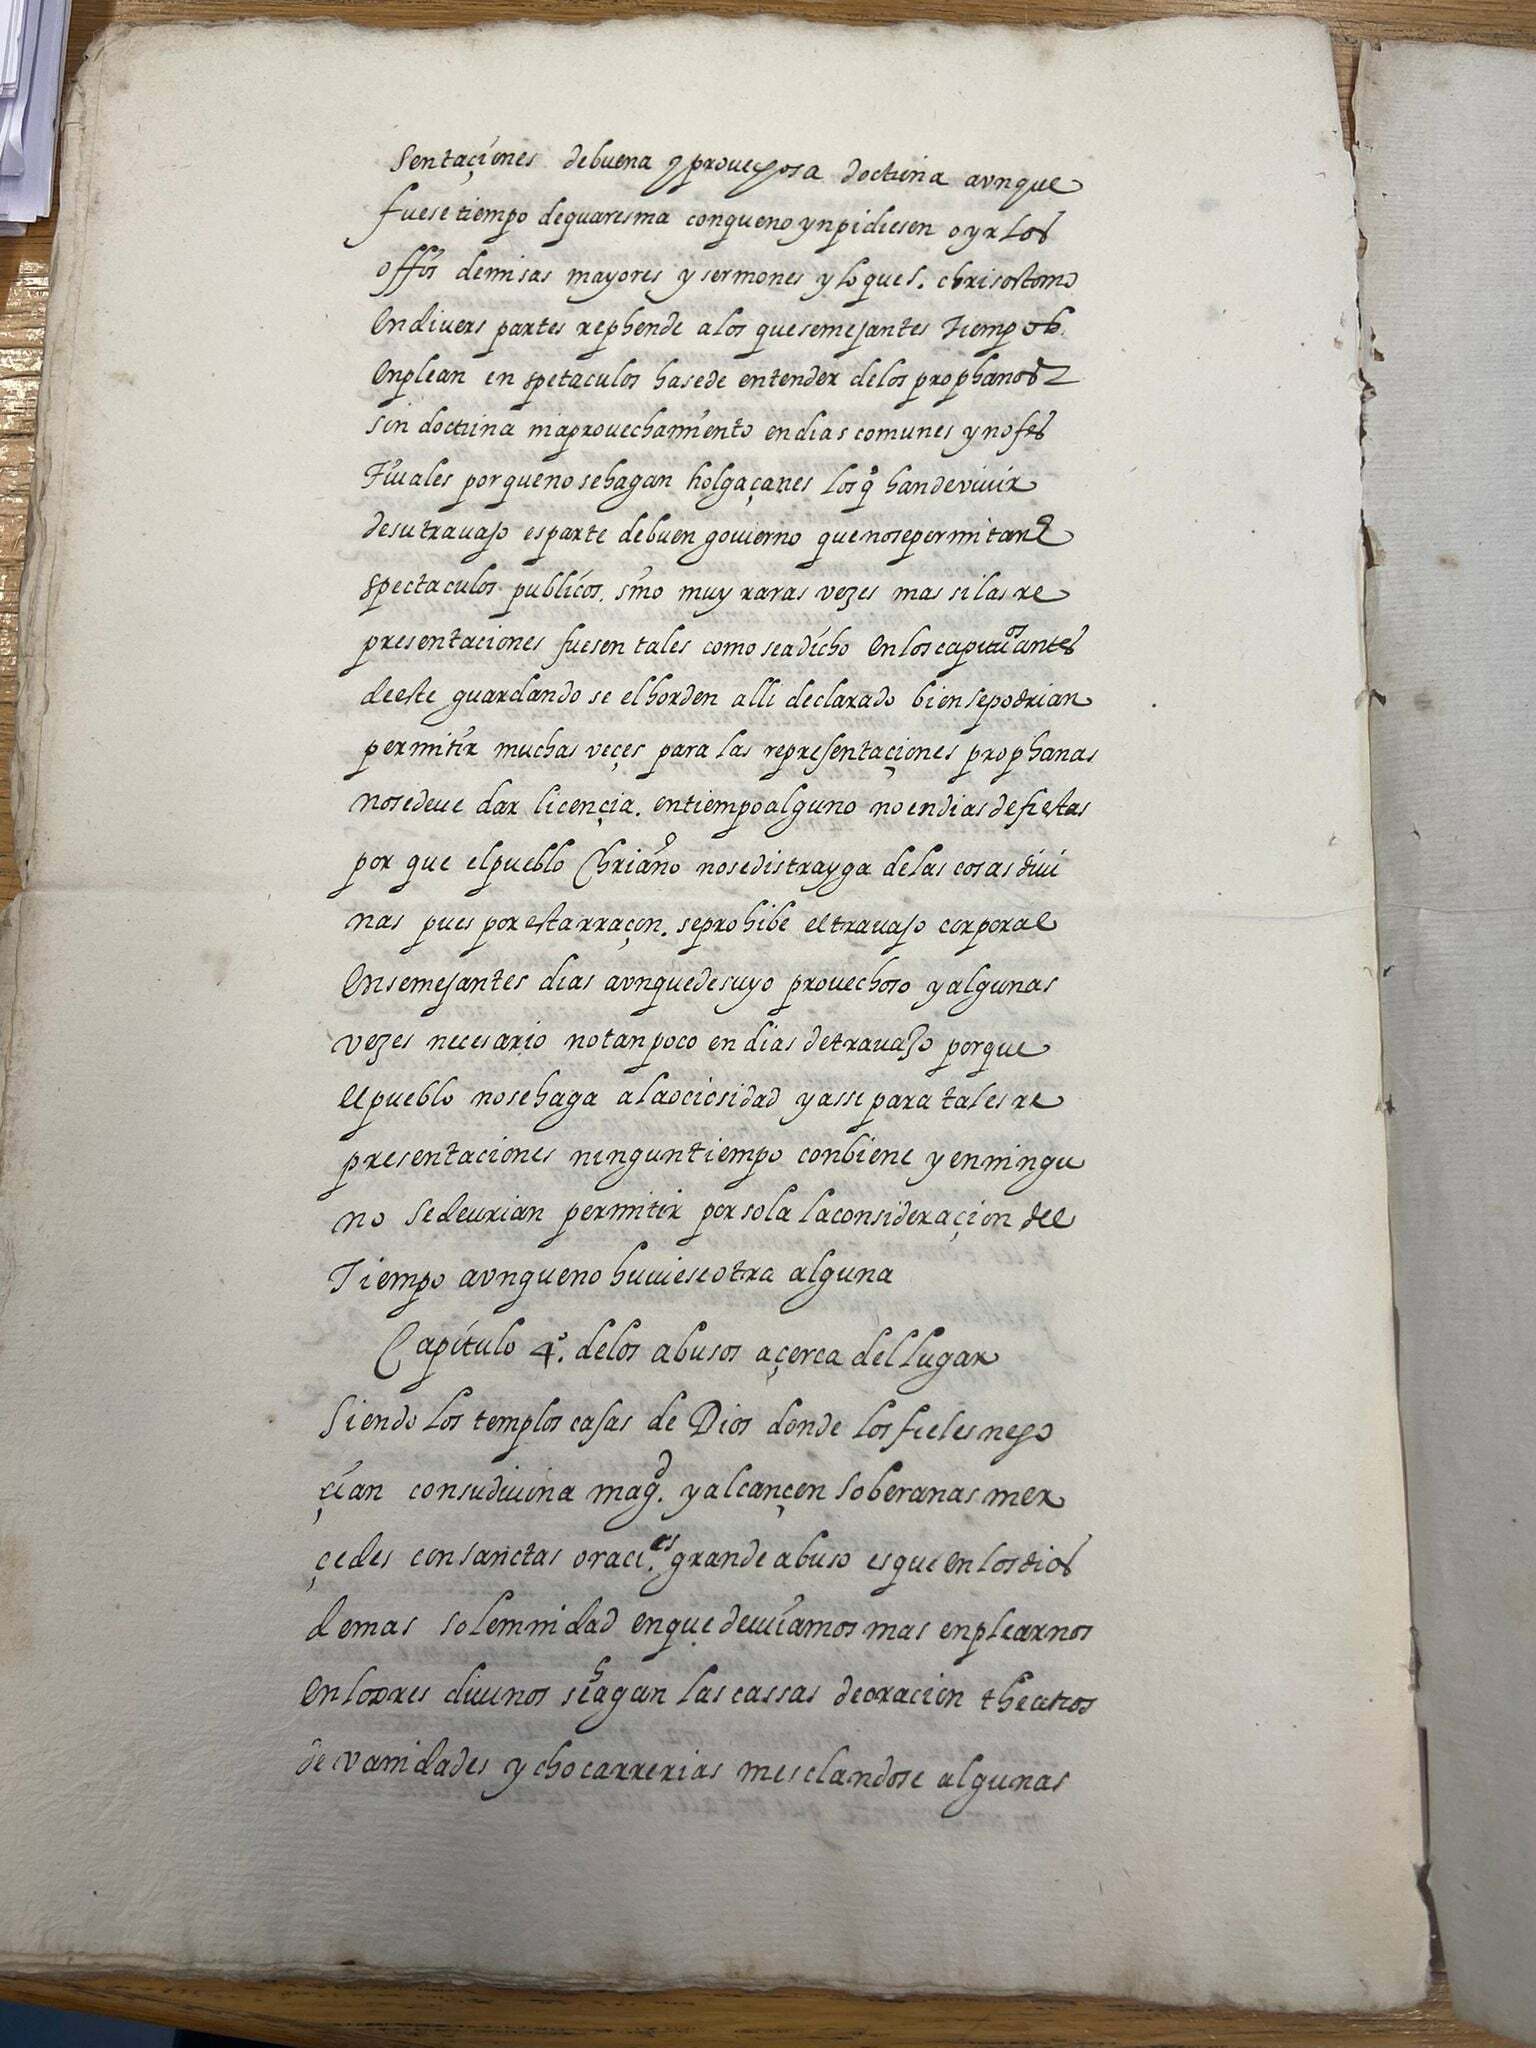 sentaçiones de buena y provechosa doctrina avnque
fuese tiempo de quaresma con que no ynpidiesen oyr los
offiº de misas mayores y sermones y lo que S. chrisostomo
en divers partes rephende a los que semejantes tiempos
enplean en spetaculos hase de entender de los prophanos
sin doctrina ni aprouechamiento en dias comunes y no fes
tiuales porque no se hagan holgaçanes los q han de viuir
de su trauajo es parte de buen gouierno que no se permitan
spectaculos publicos. sino muy raras vezes mas si las re
presentaciones fuesen tales como sea dicho en los capituºs antes
de este guardando se el horden alli declarado bien se podrian
permitir muchas veçes para las representaçiones prophanas
no se deue dar licençia. en tiempo alguno no en dias de fiestas
por que el pueblo Chriano no se distrayga de las cosas diui
nas pues por esta rraçon. se prohibe el trauajo corporal
en semejantes dias avnque de suyo prouechoso y algunas
vezes necesario no tan poco en dias de trauajo porque
el pueblo no se haga a la ociosidad y assi para tales re
presentaciones ningun tiempo conbiene y en ningu
no se deurian permitir por sola la consideraçion del
tiempo avnque no huuiese otra alguna
Capítulo 4º. de los abusos açerca del lugar
Siendo los templos casas de Dios donde los fieles nego
çian con su diuina magd. y alcançen soberanas mer
çedes con sanctas oracies. grande abuso es que en los dios
de mas solemnidad en que deuiamos mas enplearnos
en loores diuinos se hagan las cassas de oracion theatros
de vanidades y chocarrerias mesclandose algunas